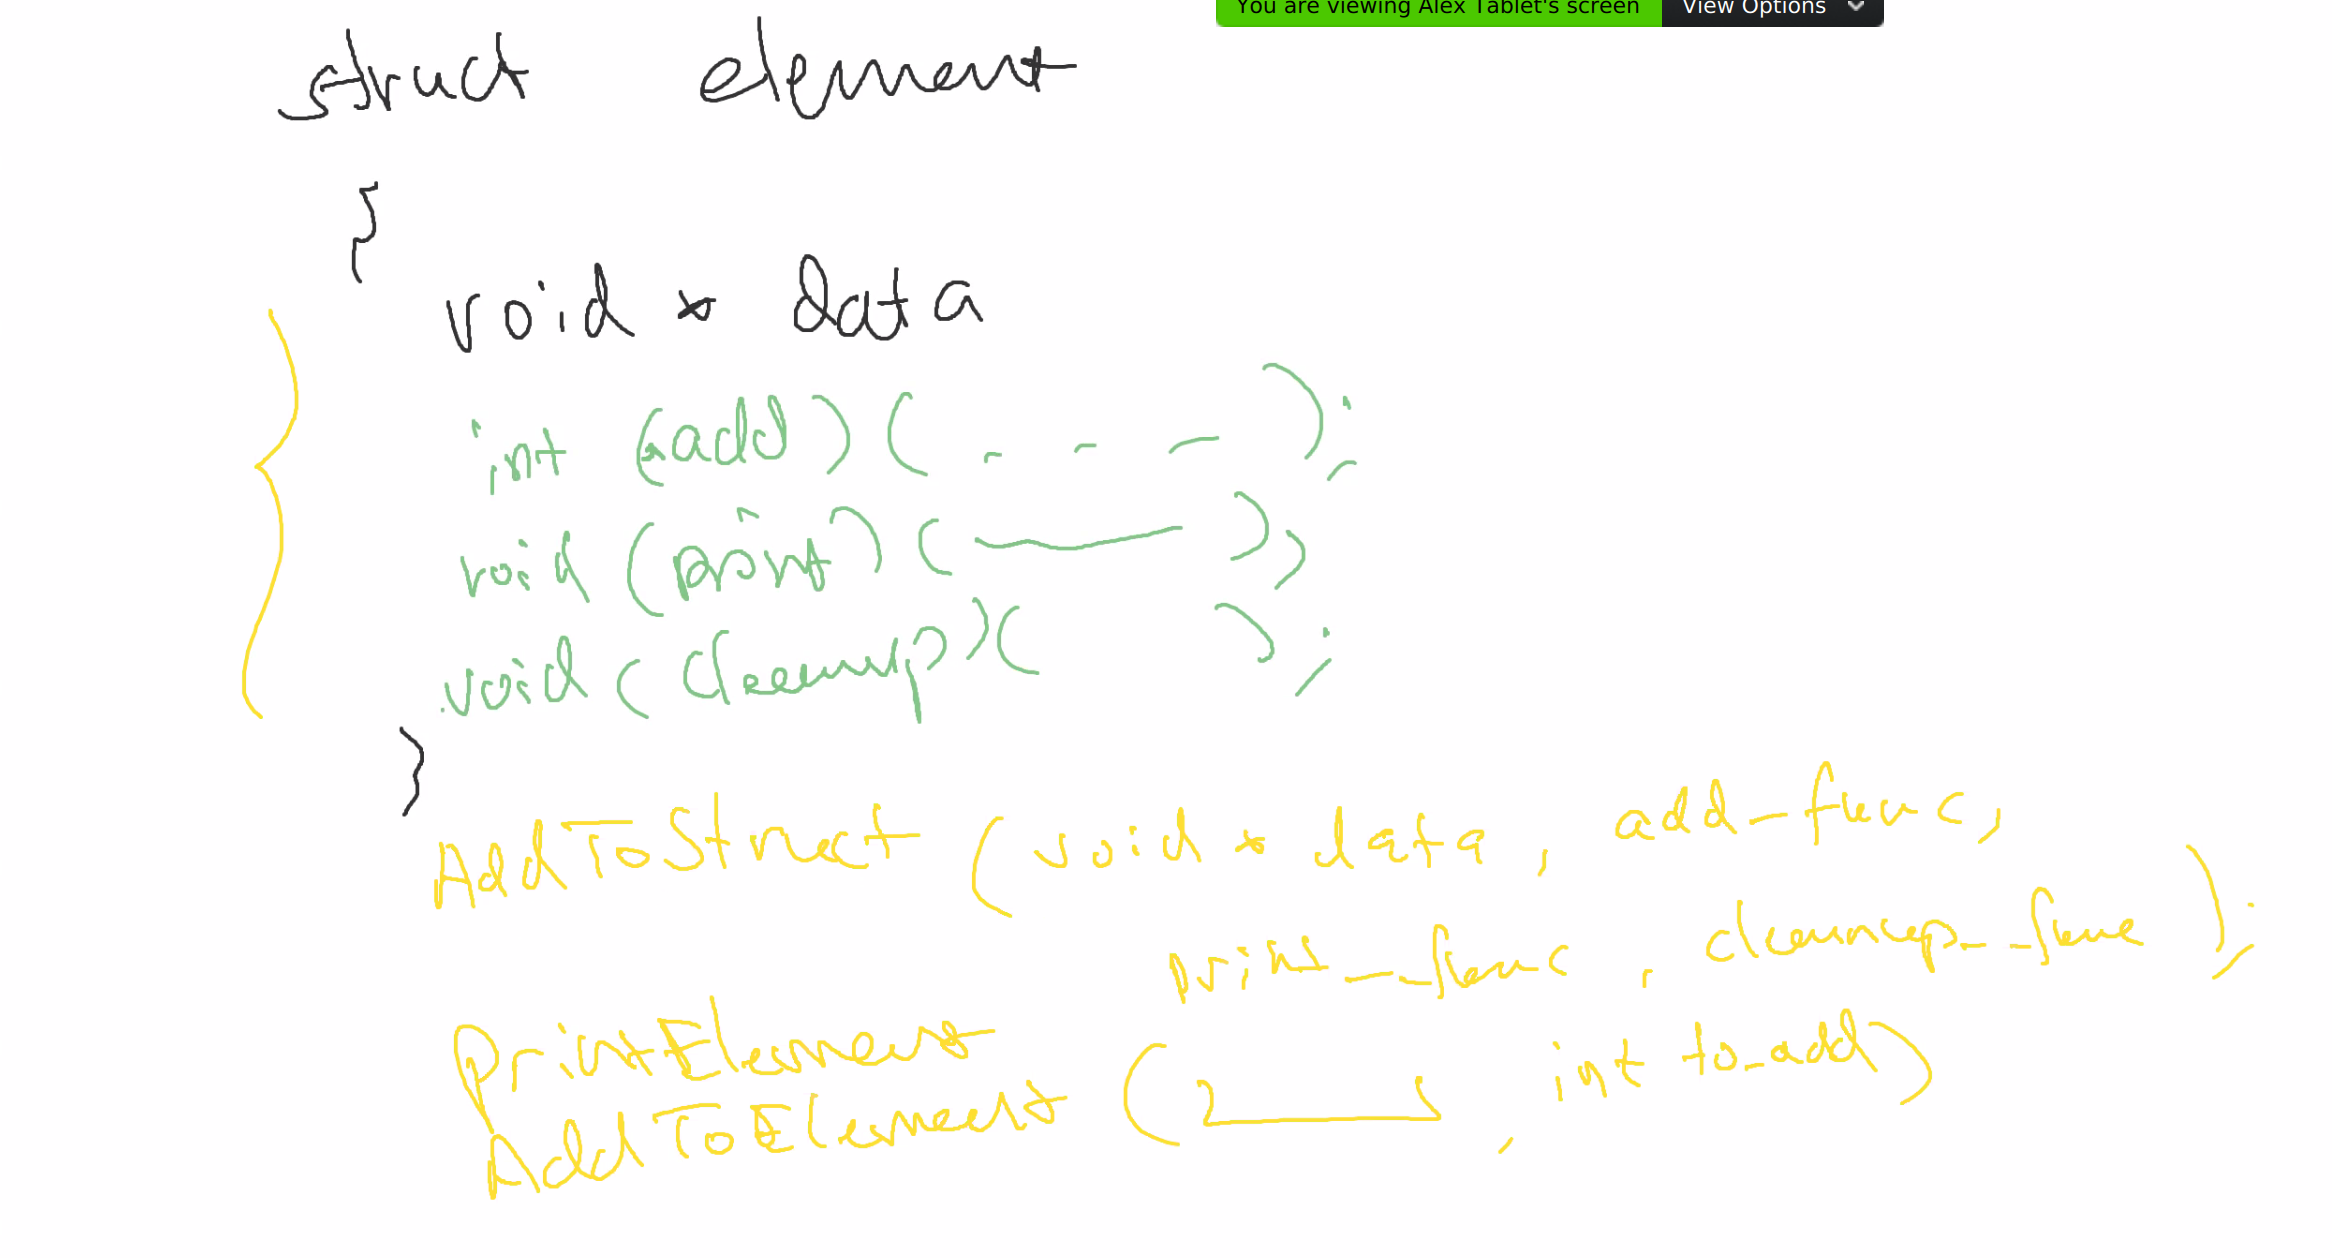 You are viewing Alex Tablet's screen View Options
struct element
{
void * data
int (*add)(- - -);
void (print)( );
void (cleanup)( );
}
AddToStruct (void * data, add_func,
print_func, cleanup_func);
PrintElement
AddToElement ( , int to_add)